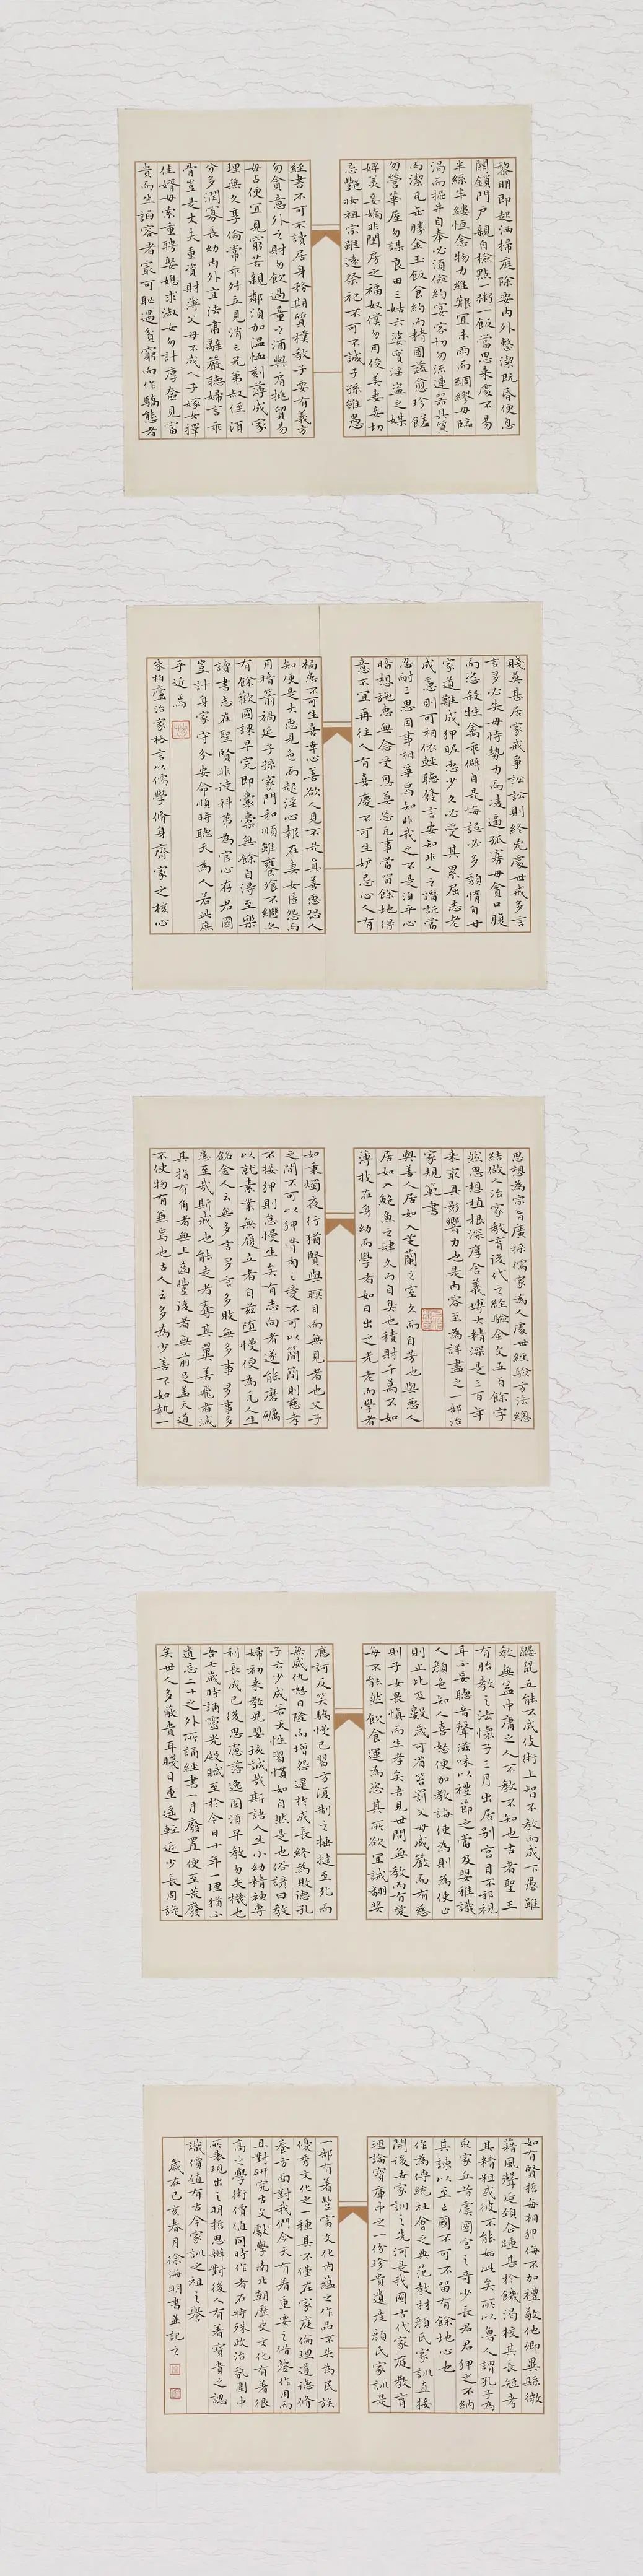 黎明即起洒掃庭除要內外整潔既昏便息
關鎖門戶親自檢點一粥一飯當思來處不易
半絲半縷恒念物力維艱宜未雨而綢繆毋臨
渴而掘井自奉必須儉約宴客切勿流連器具質
而潔瓦缶勝金玉飯食約而精園蔬愈珍饈
勿營華屋勿謀良田三姑六婆實淫盜之媒
婢美妾嬌非閨房之福奴僕勿用俊美妻妾切
忌艷妝祖宗雖遠祭祀不可不誠子孫雖愚
經書不可不讀居身務期質樸教子要有義方
勿貪意外之財勿飲過量之酒與肩挑貿易
毋占便宜見窮苦親鄰須加温恤刻薄成家
理無久享倫常乖舛立見消亡兄弟叔侄須
分多潤寡長幼內外宜法肅辭嚴聽婦言乖
骨豈是丈夫重資財薄父母不成人子嫁女擇
佳婿毋索重聘娶媳求淑女勿計厚奩見富
貴而生諂容者最可恥遇貧窮而作驕態者
賤莫甚居家戒爭訟訟則終凶處世戒多言
言多必失毋恃勢力而凌逼孤寡毋貪口腹
而恣殺牲禽乖僻自是悔誤必多頹惰自甘
家道難成狎昵惡少久必受其累屈志老
成急則可相依輕聽發言安知非人之譖訴當
忍耐三思因事相爭焉知非我之不是須平心
暗想施惠無念受恩莫忘凡事當留餘地得
意不宜再往人有喜慶不可生妒忌心人有
禍患不可生喜幸心善欲人見不是真善惡恐人
知便是大惡見色而起淫心報在妻女匿怨而
用暗箭禍延子孫家門和順雖饔飧不繼亦
有餘歡國課早完即囊橐無餘自得至樂
讀書志在聖賢非徒科第為官心存君國
豈計身家守分安命順時聽天為人若此庶
乎近焉
朱柏廬治家格言以儒學脩身齊家之核心
思想為宗旨廣採儒家為人處世經驗方法總
結做人治家教育後代之經驗全文五百餘字
然思想植根深厚含義博大精深是三百年
來最具影響力也是內容至為詳盡之一部治
家規範書
與善人居如入芝蘭之室久而自芳也與惡人
居如入鮑魚之肆久而自臭也積財千萬不如
薄技在身幼而學者如日出之光老而學者
如秉燭夜行猶賢與瞑目而無見者也父子
之間不可以狎骨肉之愛不可以簡簡則慈孝
不接狎則怠慢生矣有志向者遂能磨礪
以就素業無履立者自茲墮慢便為凡人生
銘金人云無多言多言多敗無多事多事多
患至哉斯戒也能走者奪其翼善飛者減
其指有角者無上齒豐後者無前足蓋天道
不使物有兼焉也古人云多為少善不如執一
鼯鼠五能不成伎術上智不教而成下愚雖
教無益中庸之人不教不知也古者聖王
有胎教之法懷子三月出居別宮目不邪視
耳不妄聽音聲滋味以禮節之當及嬰稚識
人顏色知人喜怒便加教誨使為則為使止
則止比及數歲可省笞罰父母威嚴而有慈
則子女畏慎而生孝矣吾見世間無教而有愛
每不能然飲食運為恣其所欲宜誡翻獎
應訶反笑驕慢已習方復制之捶撻至死而
無威忿怒日隆而增怨逮於成長終為敗德孔
子云少成若天性習慣如自然是也俗諺曰教
婦初來教兒嬰孩誠哉斯語人生小幼精神專
利長成已後思慮落逸固須早教勿失機也
吾七歲時誦靈光殿賦至於今日十年一理猶不
遺忘二十之外所誦經書一月廢置便至荒廢
矣世人多蔽貴耳賤目重遙輕近少長周旋
如有賢哲每相狎侮不加禮敬他鄉異縣微
藉風聲延頸企踵甚於饑渴校其長短考
其精粗或彼不能如此矣所以魯人謂孔子為
東家丘昔虞國宮之奇少長君君狎之不納
其諫以至亡國不可不留有餘地心也
作為傳統社會之典范教材顏氏家訓直接
開後世家訓之先河是我國古代家庭教育
理論寶庫中之一份珍貴遺產顏氏家訓是
一部有著豐富文化內蘊之作品不失為民族
優秀文化之一種其不僅在家庭倫理道德脩
養方面對我們今天有著重要之借鑒作用而
且對研究古文獻學南北朝歷史文化有著很
高之學術價值同時作者在特殊政治氛圍中
所表現出之明哲思辨對後人有著寶貴之認
識價值有古今家訓之祖之譽
歲在己亥春月徐海明書並記之